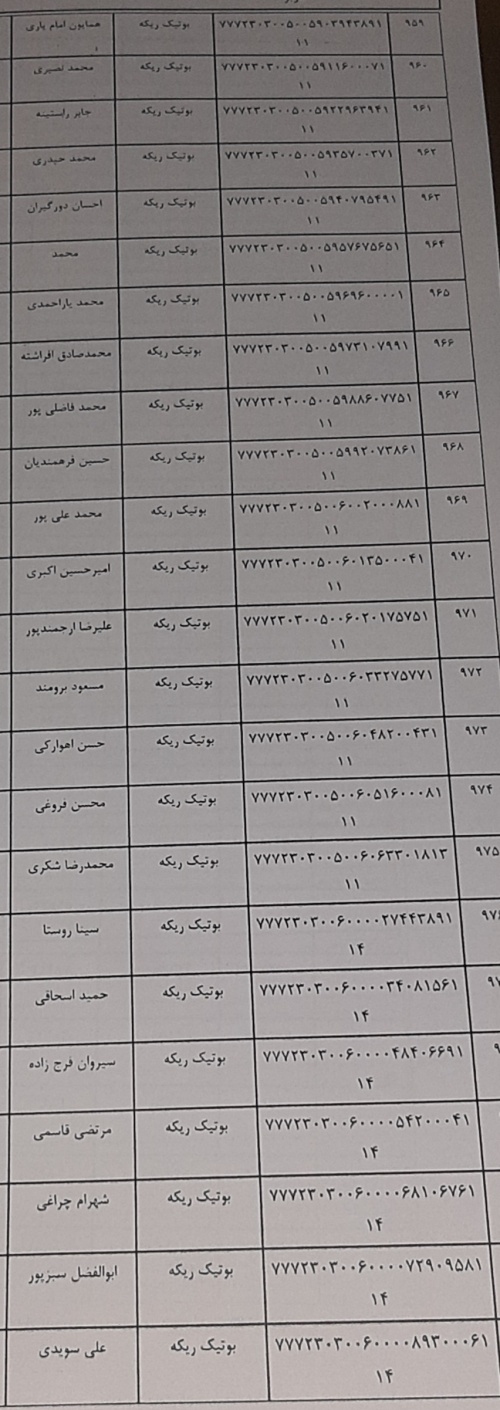 ۹۵۹ ۷۷۷۲۳۰۳۰۰۵۰۰۵۹۰۳۹۴۳۸۹۱ بوتیک ریکه همایون امام یاری
۱۱
۹۶۰ ۷۷۷۲۳۰۳۰۰۵۰۰۵۹۱۱۶۰۰۰۷۱ بوتیک ریکه محمد نصیری
۱۱
۹۶۱ ۷۷۷۲۳۰۳۰۰۵۰۰۵۹۲۲۹۶۳۹۴۱ بوتیک ریکه جابر راستینه
۱۱
۹۶۲ ۷۷۷۲۳۰۳۰۰۵۰۰۵۹۳۵۷۰۰۳۷۱ بوتیک ریکه محمد حیدری
۱۱
۹۶۳ ۷۷۷۲۳۰۳۰۰۵۰۰۵۹۴۰۷۹۵۴۹۱ بوتیک ریکه احسان دورگیران
۱۱
۹۶۴ ۷۷۷۲۳۰۳۰۰۵۰۰۵۹۵۷۶۷۵۶۵۱ بوتیک ریکه محمد
۱۱
۹۶۵ ۷۷۷۲۳۰۳۰۰۵۰۰۵۹۶۹۶۰۰۰۰۱ بوتیک ریکه محمد یاراحمدی
۱۱
۹۶۶ ۷۷۷۲۳۰۳۰۰۵۰۰۵۹۷۳۱۰۷۹۹۱ بوتیک ریکه محمدصادق افراشته
۱۱
۹۶۷ ۷۷۷۲۳۰۳۰۰۵۰۰۵۹۸۸۶۰۷۷۵۱ بوتیک ریکه محمد فاضلی پور
۱۱
۹۶۸ ۷۷۷۲۳۰۳۰۰۵۰۰۵۹۹۲۰۷۳۸۶۱ بوتیک ریکه حسین فرهمندیان
۱۱
۹۶۹ ۷۷۷۲۳۰۳۰۰۵۰۰۶۰۰۲۰۰۰۸۸۱ بوتیک ریکه محمد علی پور
۱۱
۹۷۰ ۷۷۷۲۳۰۳۰۰۵۰۰۶۰۱۳۵۰۰۰۴۱ بوتیک ریکه امیرحسین اکبری
۱۱
۹۷۱ ۷۷۷۲۳۰۳۰۰۵۰۰۶۰۲۰۱۷۵۷۵۱ بوتیک ریکه علیرضا ارجمندپور
۱۱
۹۷۲ ۷۷۷۲۳۰۳۰۰۵۰۰۶۰۳۳۲۷۵۷۷۱ بوتیک ریکه مسعود برومند
۱۱
۹۷۳ ۷۷۷۲۳۰۳۰۰۵۰۰۶۰۴۸۲۰۰۴۳۱ بوتیک ریکه حسن اهوارکی
۱۱
۹۷۴ ۷۷۷۲۳۰۳۰۰۵۰۰۶۰۵۱۶۰۰۰۸۱ بوتیک ریکه محسن فروغی
۱۱
۹۷۵ ۷۷۷۲۳۰۳۰۰۵۰۰۶۰۶۳۳۰۱۸۱۳ بوتیک ریکه محمدرضا شکری
۱۱
۷۷۷۲۳۰۳۰۰۶۰۰۰۰۲۷۴۴۳۸۹۱ بوتیک ریکه سینا روستا
۱۴
۷۷۷۲۳۰۳۰۰۶۰۰۰۰۳۴۰۸۱۵۶۱ بوتیک ریکه حمید اسحاقی
۱۴
۷۷۷۲۳۰۳۰۰۶۰۰۰۰۴۸۴۰۶۶۹۱ بوتیک ریکه سیروان فرج زاده
۱۴
۷۷۷۲۳۰۳۰۰۶۰۰۰۰۵۴۲۰۰۰۴۱ بوتیک ریکه مرتضی قاسمی
۱۴
۷۷۷۲۳۰۳۰۰۶۰۰۰۰۶۸۱۰۶۷۶۱ بوتیک ریکه شهرام چراغی
۱۴
۷۷۷۲۳۰۳۰۰۶۰۰۰۰۷۲۹۰۹۵۸۱ بوتیک ریکه ابوالفضل سبزپور
۱۴
۷۷۷۲۳۰۳۰۰۶۰۰۰۰۸۹۳۰۰۰۶۱ بوتیک ریکه علی سویدی
۱۴